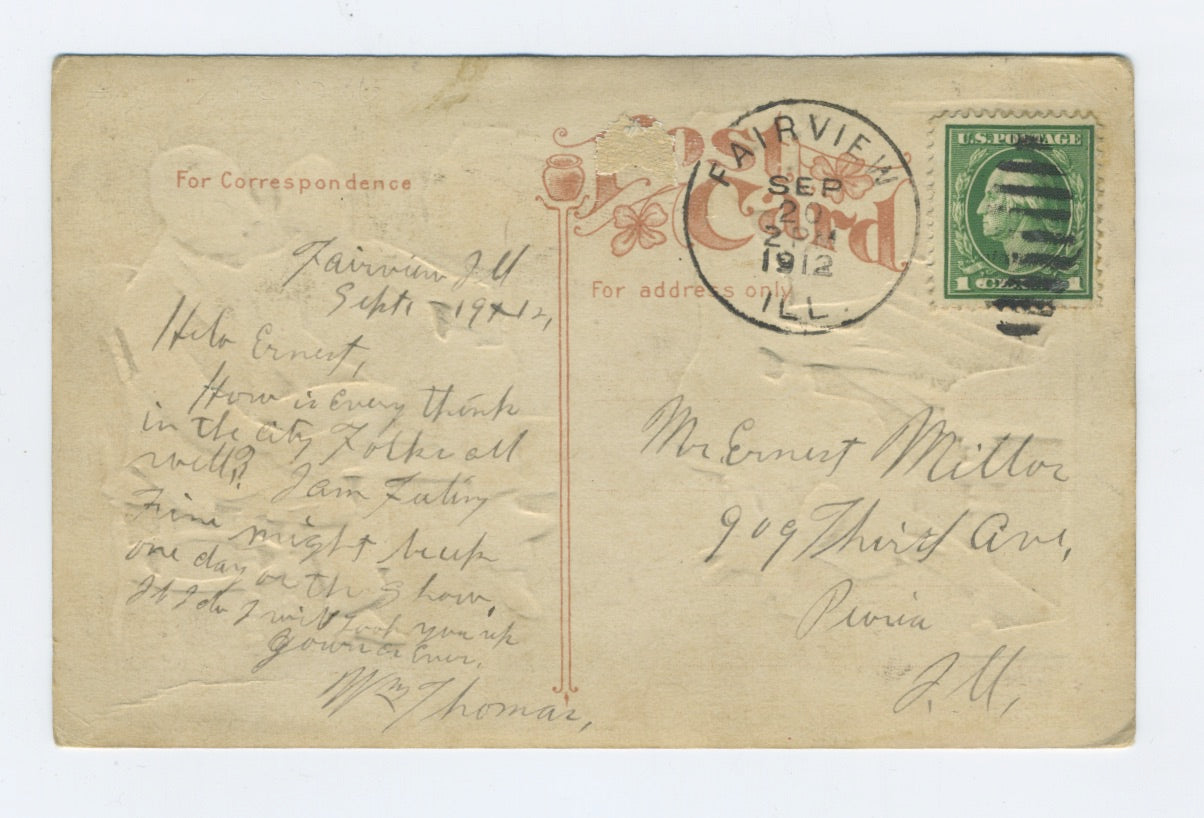 Post Card
For Correspondence
For address only
FAIRVIEW
SEP
20
2 PM
1912
ILL.
U.S. POSTAGE
1 CENT 1
Fairview Ill
Sept. - 19th 12,
Helo Ernest,
How is Every think
in the city Folks all
well,? I am Feling
Fine might
one day on the Show,
If I do I will look you up
Yours as Ever,
Wm Thomas,
Mr. Ernest
909 Third Ave,
Peoria
Ill,